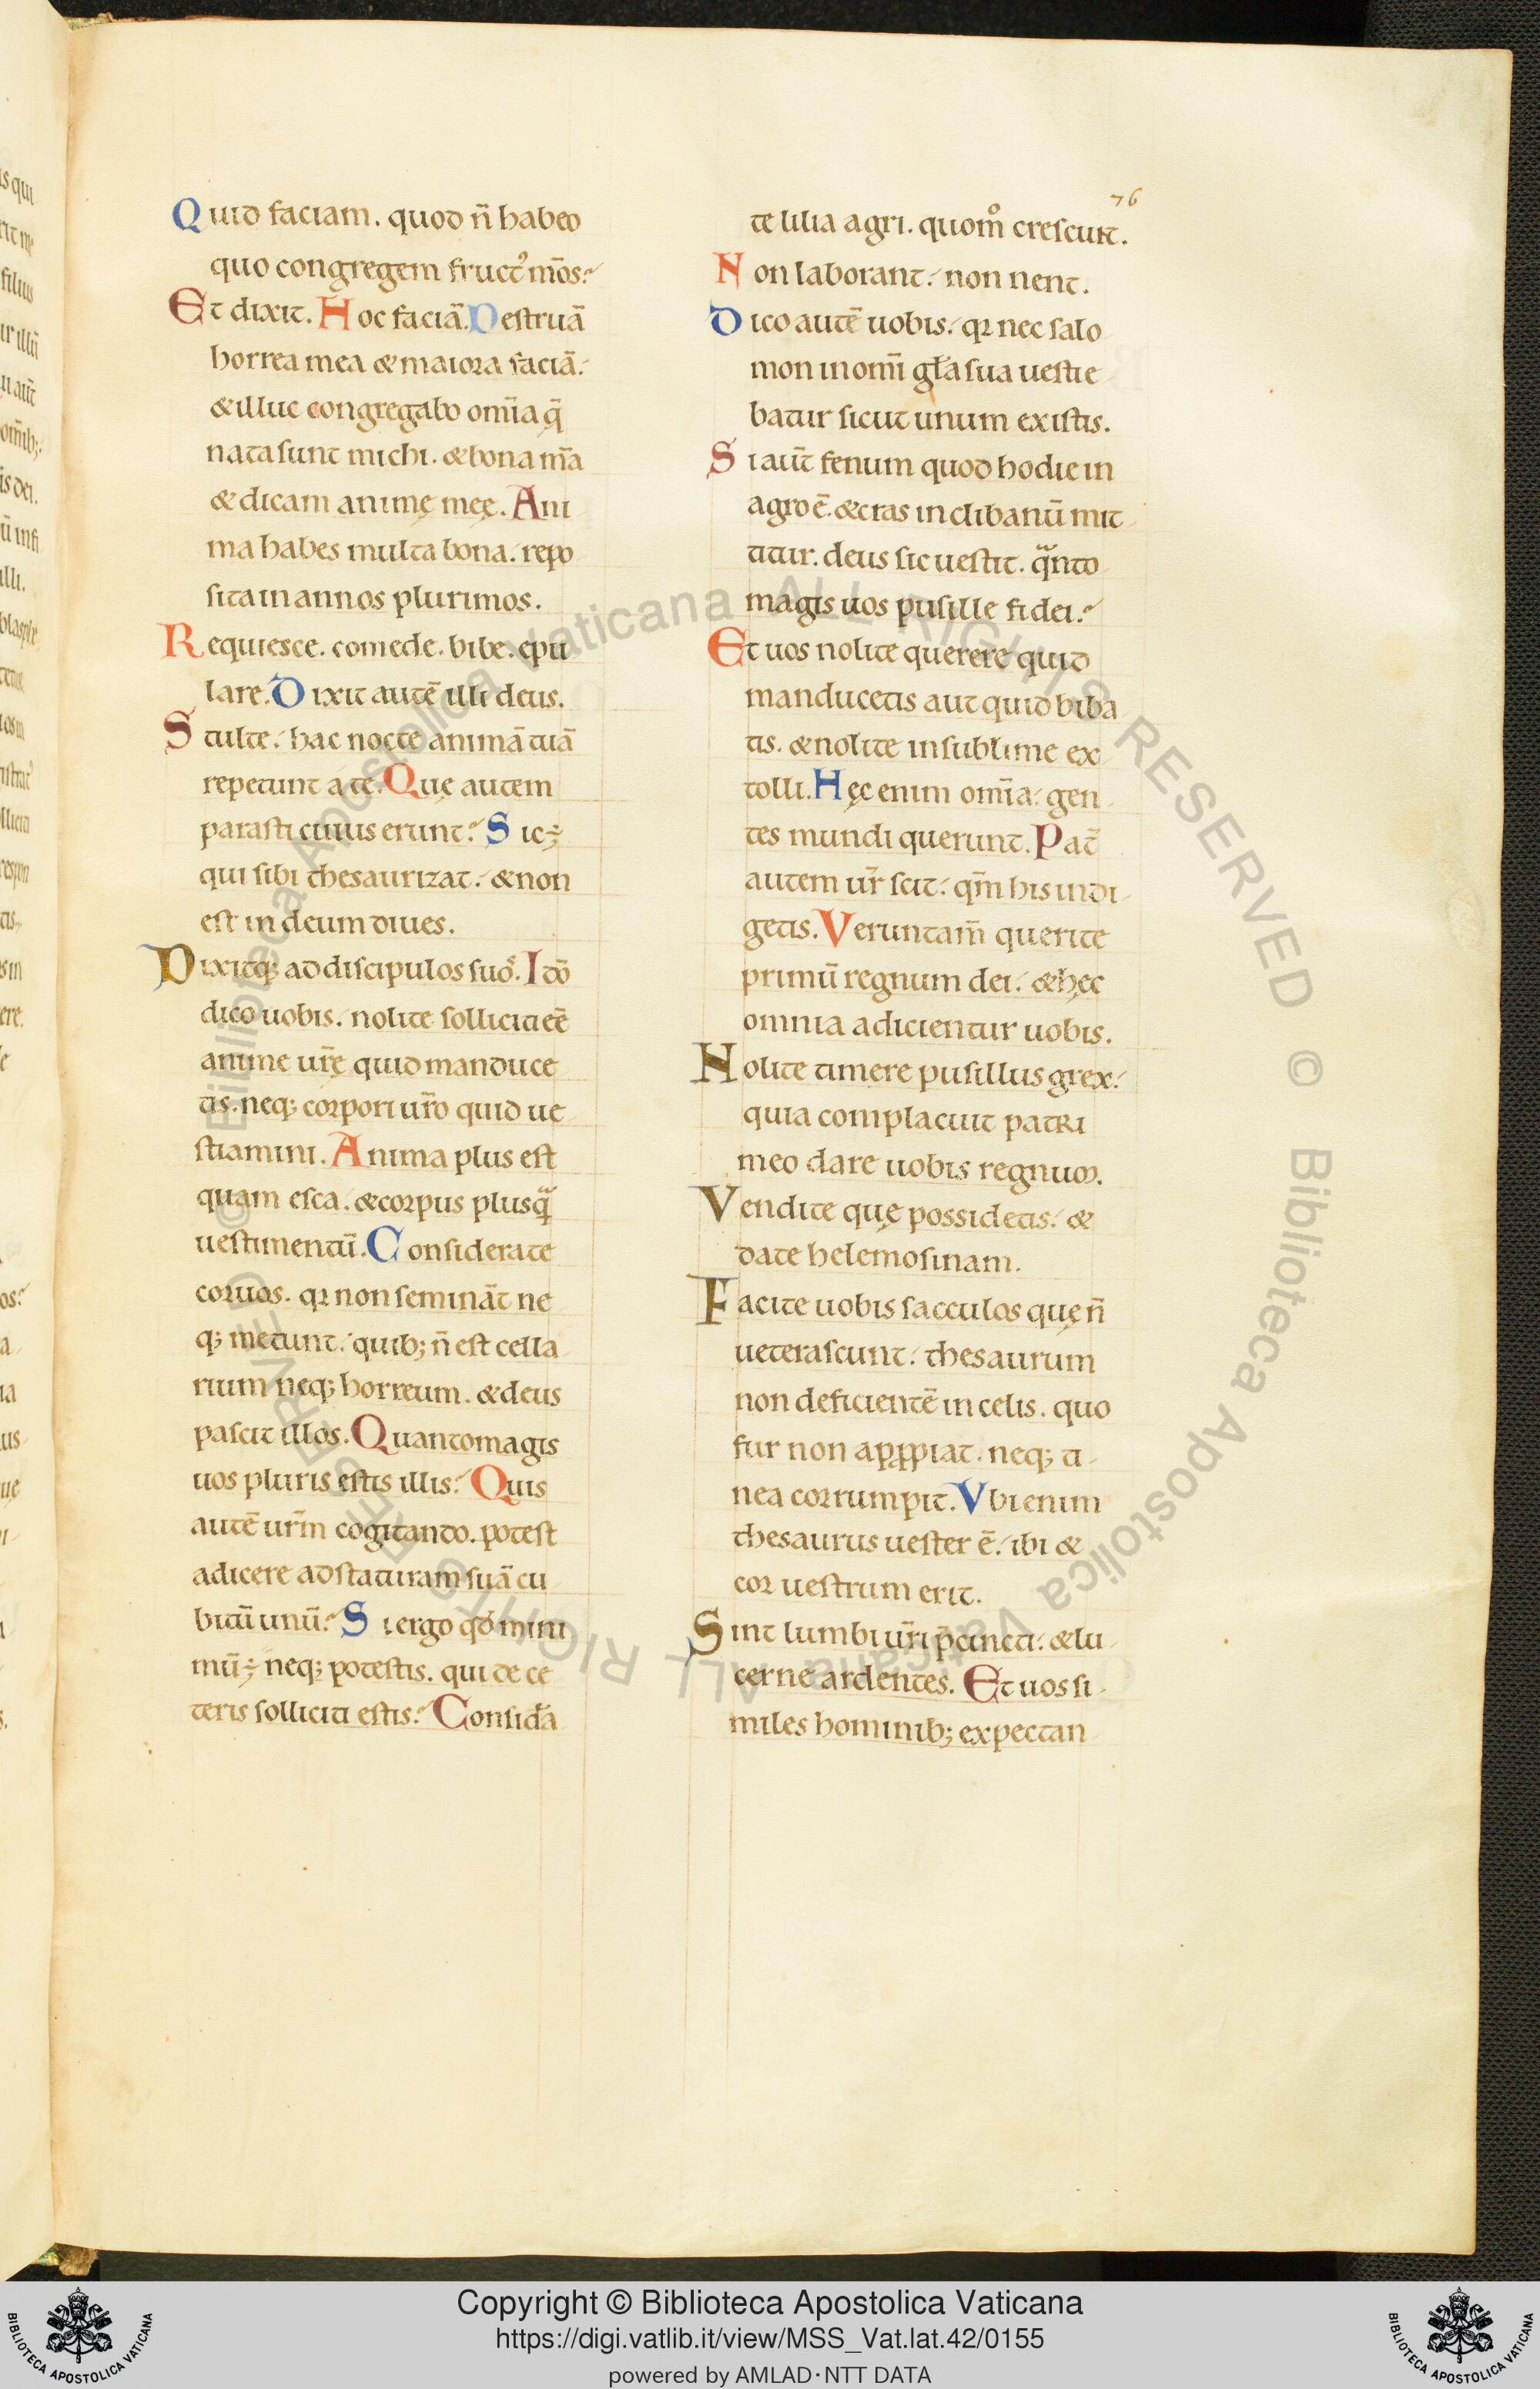 76
Quid faciam. quod n̄ habeo
quo congregem fruct᾽ mōs?
Et dixit. Hoc faciā. Destruā
horrea mea & maiora faciā.
& illuc congregabo om̄ia q̄
nata sunt michi. & bona m̄a
& dicam animę meę. Ani
ma habes multa bona. repo
sita in annos plurimos.
Requiesce. comede. bibe. epu
lare. Dixit autē illi deus.
Stulte. hac nocte animā tuā
repetunt a te. Quę autem
parasti cuius erunt? Sic ÷
qui sibi thesaurizat. & non
est in deum diues.
Dixitq; ad discipulos suos. Idō
dico uobis. nolite solliciti eē
anime ur̄ę quid manduce
tis. neq; corpori ur̄o quid ue
stiamini. Anima plus est
quam esca. & corpus plusq̄
uestimentū. Considerate
coruos. qꝛ non seminā̄t ne
q; metunt. quib; n̄ est cella
rium neq; horreum. & deus
pascit illos. Quanto magis
uos pluris estis illis? Quis
autē ur̄m cogitando. potest
adicere ad staturam suā cu
bitū unū? Si ergo qd̄ mini
mū ÷ neq; potestis. qui de ce
teris solliciti estis? Consid̄a
te lilia agri. quom̊ crescunt.
Non laborant. non nent.
Dico autē uobis. qꝛ nec salo
mon in om̄i gl̄a sua uestie
batur sicut unum ex istis.
Si aut̄ fenum quod hodie in
agro ē. & cras in clibanū mit
titur. deus sic uestit. q̄nto
magis uos pusille fidei?
Et uos nolite querere quid
manducetis aut quid biba
tis. & nolite in sublime ex
tolli. Hęc enim om̄ia gen
tes mundi querunt. Pat̄
autem ur̄ scit. qm̄ his indi
getis. Veruntam̄ querite
primū regnum dei. & hęc
omnia adicientur uobis.
Nolite timere pusillus grex.
quia complacuit patri
meo dare uobis regnum.
Vendite quę possidetis. &
date helemosinam.
Facite uobis sacculos quę n̄
ueterascunt. thesaurum
non deficientē in celis. quo
fur non apꝓpiat. neq; ti
nea corrumpit. Vbi enim
thesaurus uester ē. ibi &
cor uestrum erit.
Sint lumbi ur̄i p̄cincti. & lu
cerne ardentes. Et uos si
miles hominib; expectan
Copyright © Biblioteca Apostolica Vaticana
https://digi.vatlib.it/view/MSS_Vat.lat.42/0155
powered by AMLAD·NTT DATA
BIBLIOTECA APOSTOLICA VATICANA
BIBLIOTECA APOSTOLICA VATICANA
© Biblioteca Apostolica Vaticana ALL RIGHTS RESERVED © Biblioteca Apostolica Vaticana ALL RIGHTS RESERVED